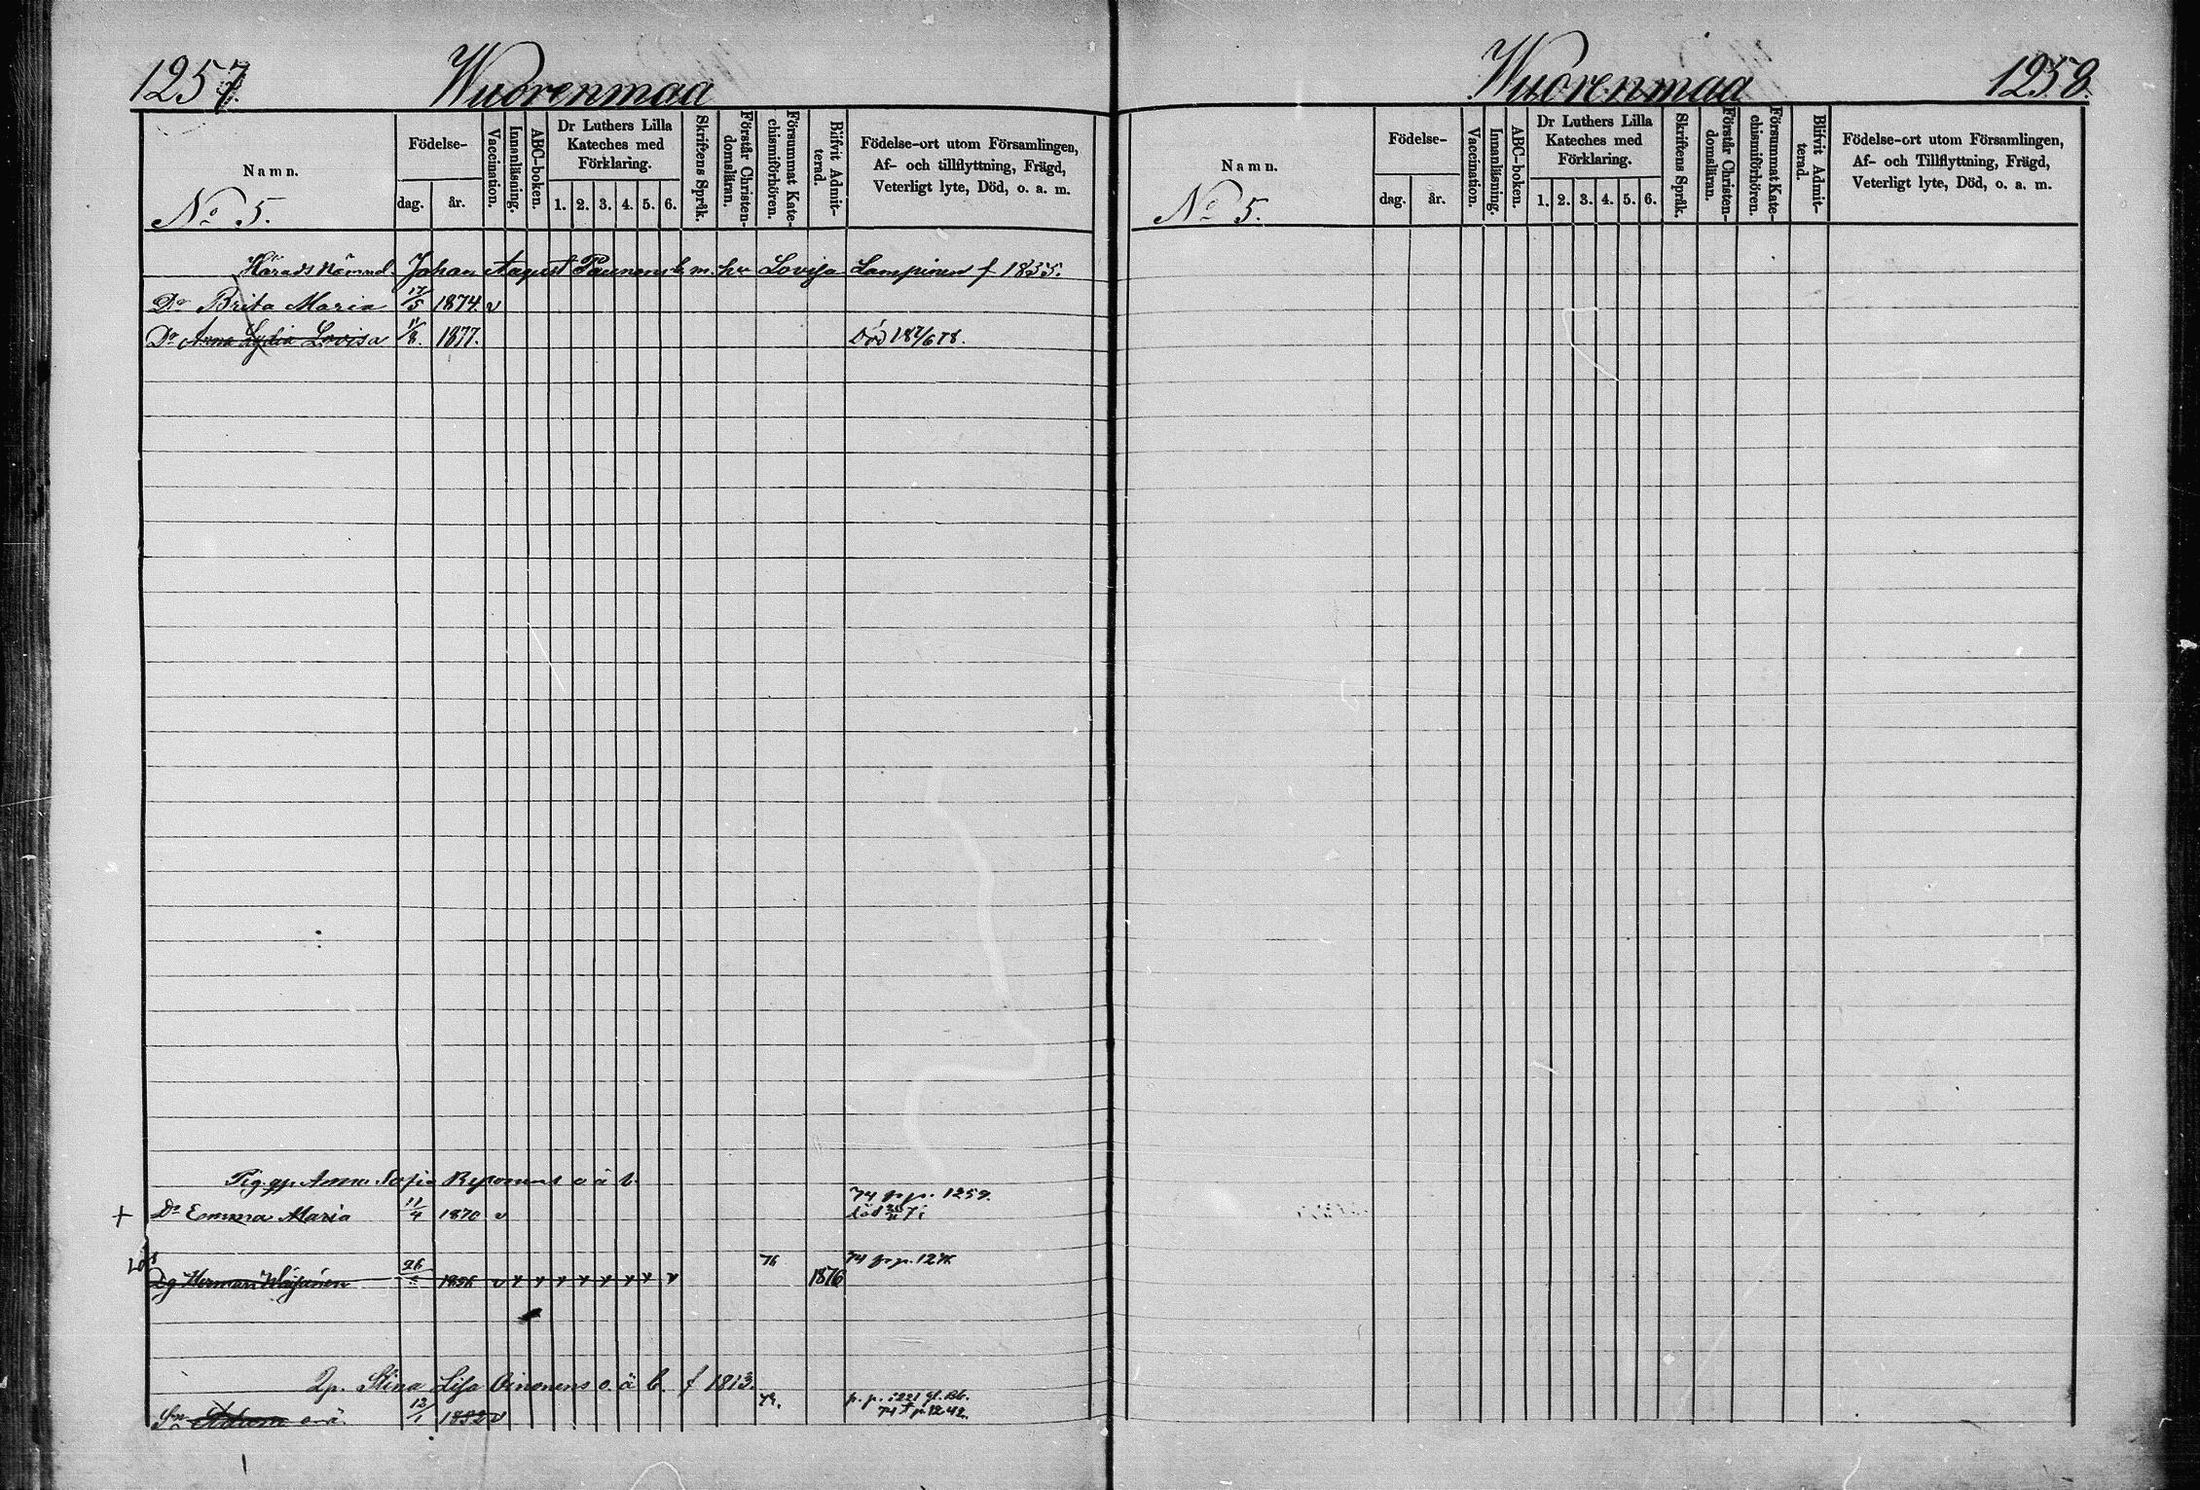 1257. Wuorenmaa
Namn.
No 5.
Födelse-
dag. år.
Vaccination.
Innanläsning.
ABC-boken.
Dr Luthers Lilla
Kateches med
Förklaring.
1. 2. 3. 4. 5. 6.
Skriftens Språk.
Förstår Christen-
domsläran.
Försummat Kate-
chismiförhören.
Blifvit Admit-
terad.
Födelse-ort utom Församlingen,
Af- och tillflyttning, Frägd,
Veterligt lyte, Död, o. a. m.
Härads Nämnd. Johan August b. m. hu Lovisa Lampinen f 1835.
Dr Brita Maria 17/5 1874 v
Dr Anna Lydia Lovisa 11/8. 1877.
Pig. Anna Sofia o ä b.
74 fr p. 1259.
+ Dr Emma Maria 11/4 1870 v
Dg Herman 26 1856 v v v v v v v v v 76 1876 74 fr p.
Stina Lisa Oinonens o. ä b. f 1813.
Sn o ä. 13/1 1852 v
74 p. 1242.
Wuorenmaa 1258.
Namn.
No 5.
Födelse-
dag. år.
Vaccination.
Innanläsning.
ABC-boken.
Dr Luthers Lilla
Kateches med
Förklaring.
1. 2. 3. 4. 5. 6.
Skriftens Språk.
Förstår Christen-
domsläran.
Försummat Kate-
chismiförhören.
Blifvit Admit-
terad.
Födelse-ort utom Församlingen,
Af- och Tillflyttning, Frägd,
Veterligt lyte, Död, o. a. m.